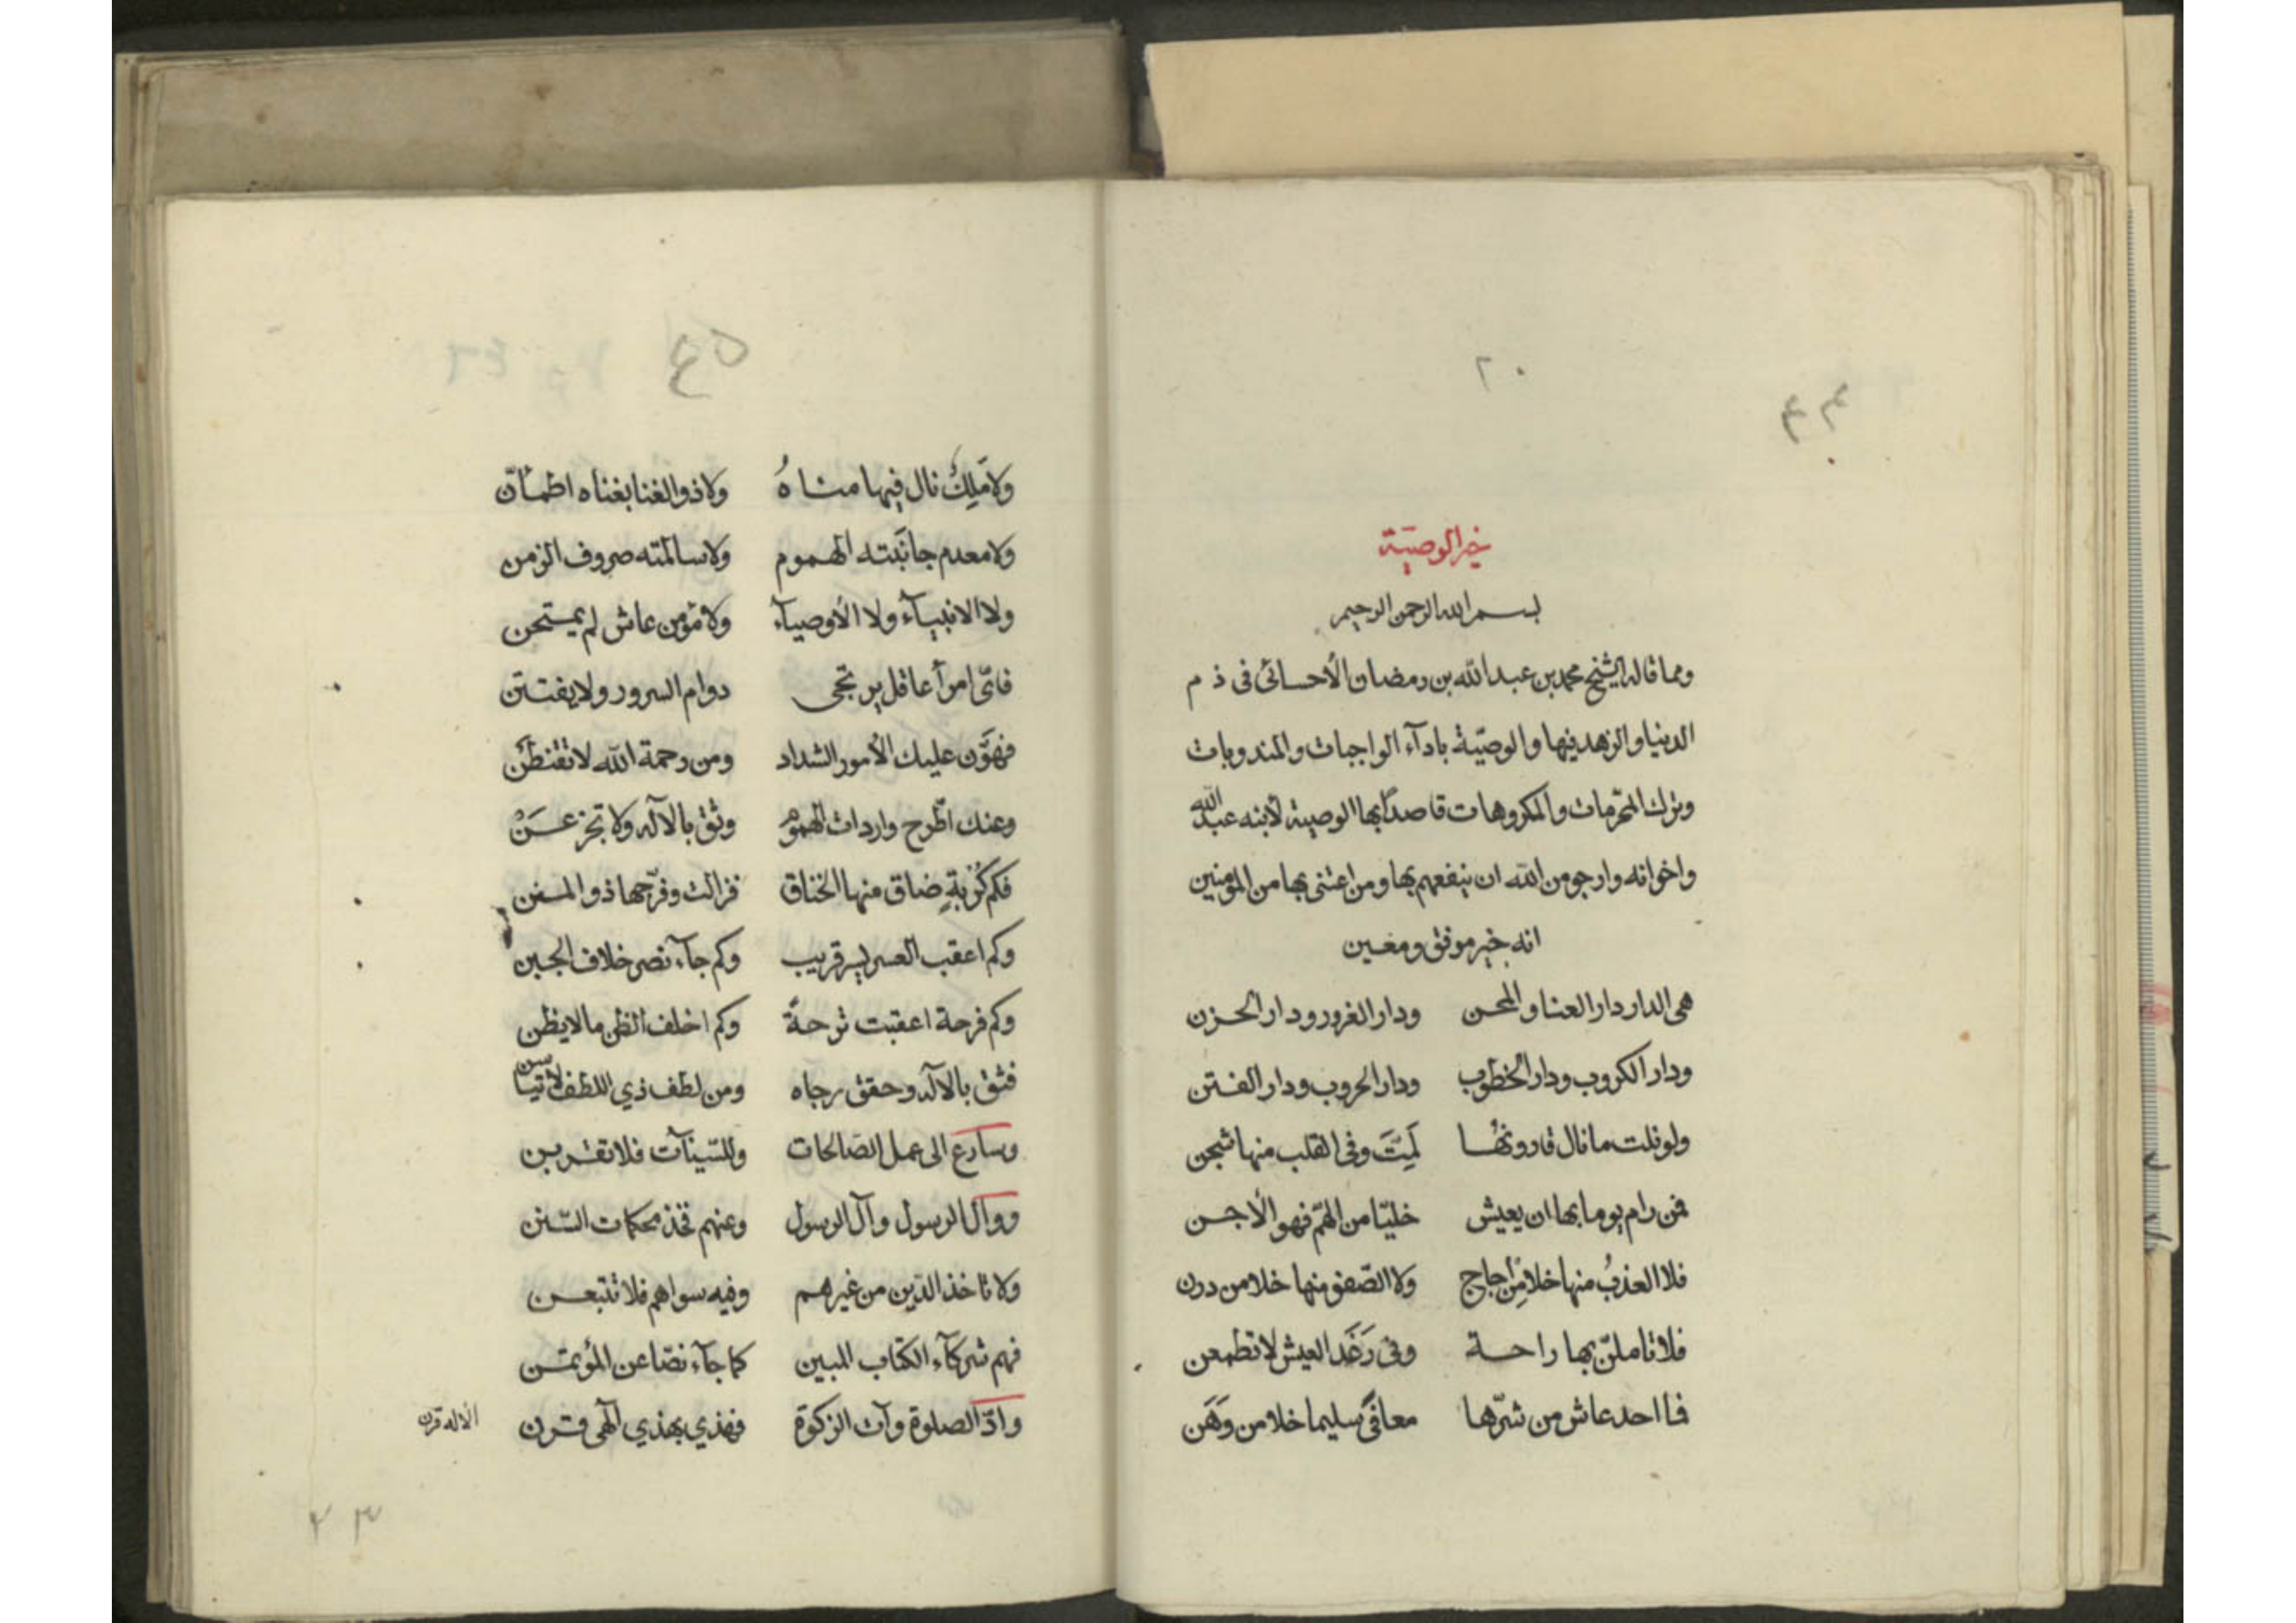 ٢٠
٤٣
خير الوصيّة
بسم الله الرحمن الرحيم
ومما قاله الشيخ محمد بن عبد الله بن رمضان الأحسائى فى ذم
الدنيا والزهد فيها والوصيّة بادآء الواجبات والمندوبات
وترك المحرّمات والمكروهات قاصدًا بها الوصية لأبنه عبد الله
واخوانه وارجو من الله ان ينفعهم بها ومن اعتنى بها من المؤمنين
انه خير موفق ومعين
هى الدار دار العنا والمحن ودار الغرور ودار الحزن
ودار الكروب ودار الخطوب ودار الحروب ودار الفتن
ولو نلت ما نال قارونها لَمِتَّ وفى القلب منها شجن
فمن رام يوما بها ان يعيش خليّا من الهمّ فهو الأجن
فلا العذبُ منها خلا مِن اجاج ولا الصّفو منها خلا من درن
فلا تاملنّ بها راحة وفى رَغَد العيش لا تطمعن
فما احد عاش من شرّها معافىً سليما خلا من وَهَن
ولا مَلِكٌ نال فيها مناهُ ولا ذو الغنا بغناه اطمأنّ
ولا معدم جانَبته الهموم ولا سالمته صروف الزمن
ولا الانبيآء ولا الأوصيآء ولا مؤمن عاش لم يمتحن
فائّ امرأ عاقل يرتجى دوام السرور ولا يفتتن
فهوَّن عليك الأمور الشداد ومن رحمة الله لا تقنطَن
وعنك اطّرح واردات الهموم وثق بالآله ولا تجزعَنْ
فكم كُرْبةٍ ضاق منها الخناق فزالت وفرّجها ذو المنن
وكم اعقب العسر يسر قريب وكم جآء نصر خلاف الجبن
وكم فرحة اعقبت ترحةً وكم اخلف الظن ما لا يظن
فثق بالآله وحقق رجاه ومن لطف ذي اللطف لا تيأسن
وسارع الى عمل الصالحات وللسّيئآت فلا تقربن
ووال الرسول وآل الرسول وعنهم فخذ محكمات السّنن
ولا تاخذ الدّين من غيرهم وفيه سواهم فلا تتبعن
فهم شركآء الكتاب المبين كما جآء نصّا عن المؤتمن
وادّ الصلوة وآت الزكوة فهذي بهذي آلهى قرن
الاله قرن